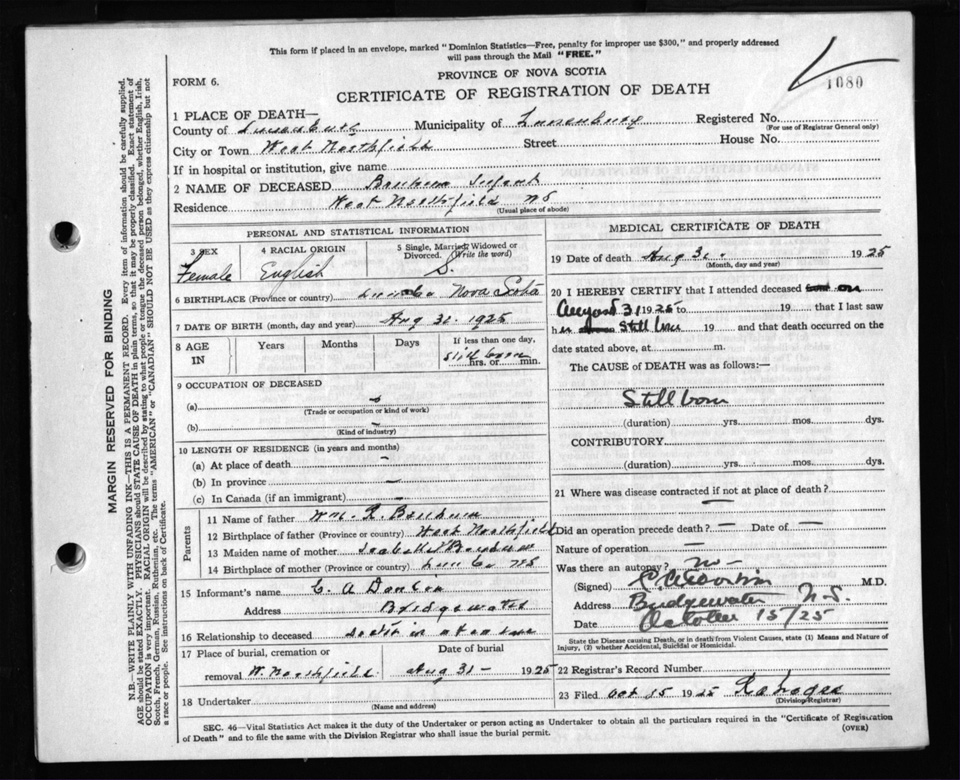 This form if placed in an envelope, marked "Dominion Statistics—Free, penalty for improper use $300," and properly addressed
will pass through the Mail "FREE."
1080
PROVINCE OF NOVA SCOTIA
FORM 6.
CERTIFICATE OF REGISTRATION OF DEATH
1 PLACE OF DEATH—
County of Lunenburg Municipality of Lunenburg Registered No.
(For use of Registrar General only)
City or Town West Northfield Street House No.
If in hospital or institution, give name
2 NAME OF DECEASED Infant
Residence West Northfield NS
(Usual place of abode)
PERSONAL AND STATISTICAL INFORMATION
3 SEX 4 RACIAL ORIGIN 5 Single, Married, Widowed or
Divorced. (Write the word)
Female English S.
6 BIRTHPLACE (Province or country) Lun Co Nova Scotia
7 DATE OF BIRTH (month, day and year) Aug 31. 1925
8 AGE IN Years Months Days If less than one day,
still born
hrs. or min.
9 OCCUPATION OF DECEASED
(a)
(Trade or occupation or kind of work)
(b)
(Kind of industry)
10 LENGTH OF RESIDENCE (in years and months)
(a) At place of death —
(b) In province —
(c) In Canada (if an immigrant) —
Parents
11 Name of father Wm. R.
12 Birthplace of father (Province or country) West Northfield
13 Maiden name of mother
14 Birthplace of mother (Province or country) Lun Co NS
15 Informant's name C. A
Address Bridgewater
16 Relationship to deceased
17 Place of burial, cremation or Date of burial
removal W. Northfield Aug 31 - 1925
18 Undertaker
(Name and address)
MEDICAL CERTIFICATE OF DEATH
19 Date of death Aug 31. 1925
(Month, day and year)
20 I HEREBY CERTIFY that I attended deceased on
August 31 1925 to 19 that I last saw
h Still born 19 and that death occurred on the
date stated above, at m.
The CAUSE of DEATH was as follows:—
Still born
(duration) yrs. mos. dys.
CONTRIBUTORY
(duration) yrs. mos. dys.
21 Where was disease contracted if not at place of death?
—
Did an operation precede death? — Date of —
Nature of operation —
Was there an autopsy? no -
(Signed) M.D.
Address Bridgewater N.S.
Date October 15/25
State the Disease causing Death, or in death from Violent Causes, state (1) Means and Nature
of Injury, (2) whether Accidental, Suicidal or Homicidal.
22 Registrar's Record Number
23 Filed Oct 15 1925
(Division Registrar)
SEC. 46—Vital Statistics Act makes it the duty of the Undertaker or person acting as Undertaker to obtain all the particulars required in the "Certificate of Registration
of Death" and to file the same with the Division Registrar who shall issue the burial permit. (OVER)
MARGIN RESERVED FOR BINDING
N.B.—WRITE PLAINLY WITH UNFADING INK—THIS IS A PERMANENT RECORD. Every item of information should be carefully supplied.
AGE should be stated EXACTLY. PHYSICIANS should STATE CAUSE OF DEATH in plain terms, so that it may be properly classified. Exact statement of
OCCUPATION is very important. RACIAL ORIGIN will be described by stating to what people or tongue the deceased person belonged, whether English, Irish,
Scotch, French, German, Russian, Ruthenian, etc. The terms "AMERICAN" or "CANADIAN" SHOULD NOT BE USED as they express citizenship but not
a race or people. See instructions on back of Certificate.